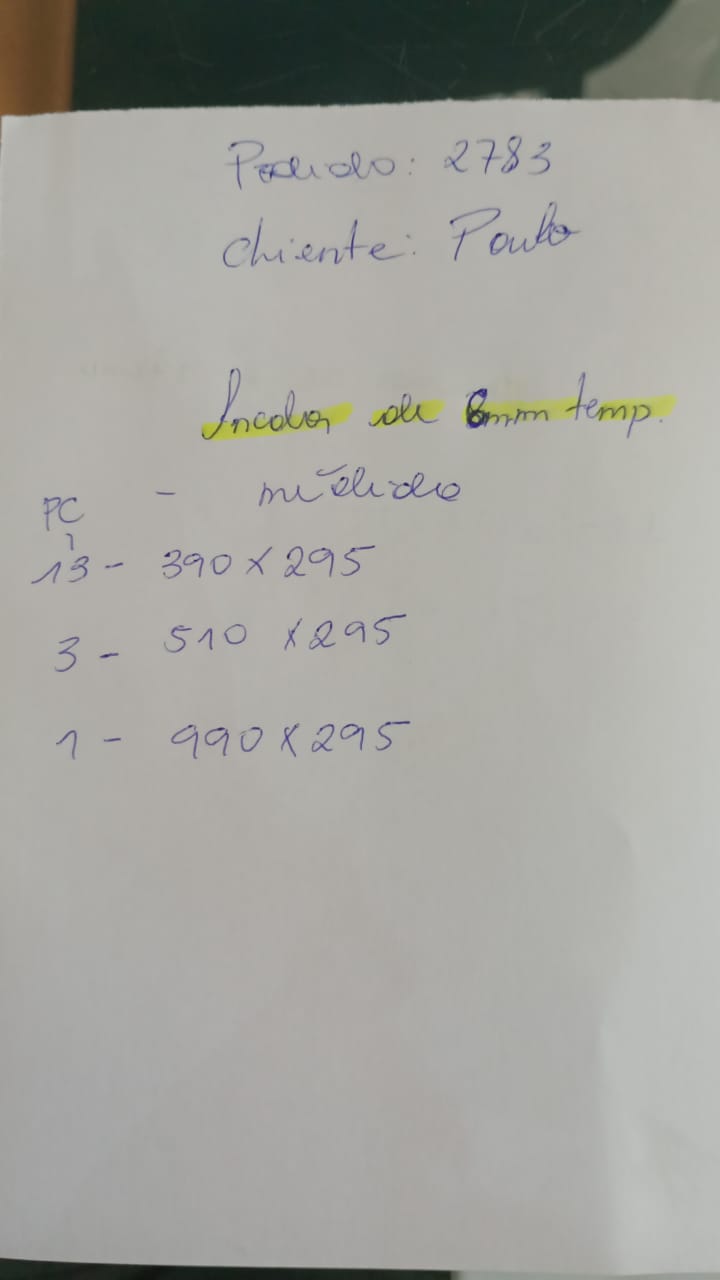 Pedido: 2783
Cliente: Paulo
Incolor de 6mm temp.
PC - médida
13 - 390 x 295
3 - 510 x 295
1 - 990 x 295